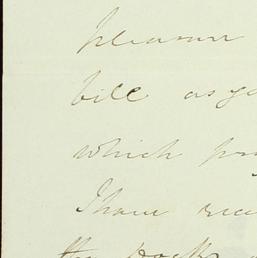 pleasure
bill as yo
which pr
I have rec
the books